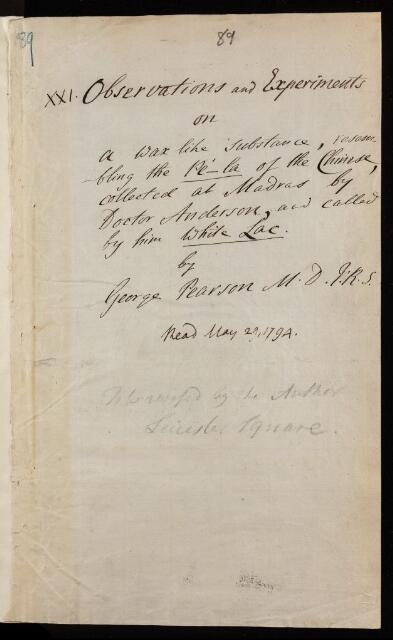 89
89
XXI. Observations and Experiments
on
a wax like substance, resem-
-bling the Pé-la of the Chinese,
collected at Madras by
Doctor Anderson, and called
by him White Lac.
by
George Pearson M.D. F.R.S.
Read May 29, 1794.
To be revised by the Author
Leicester Square.